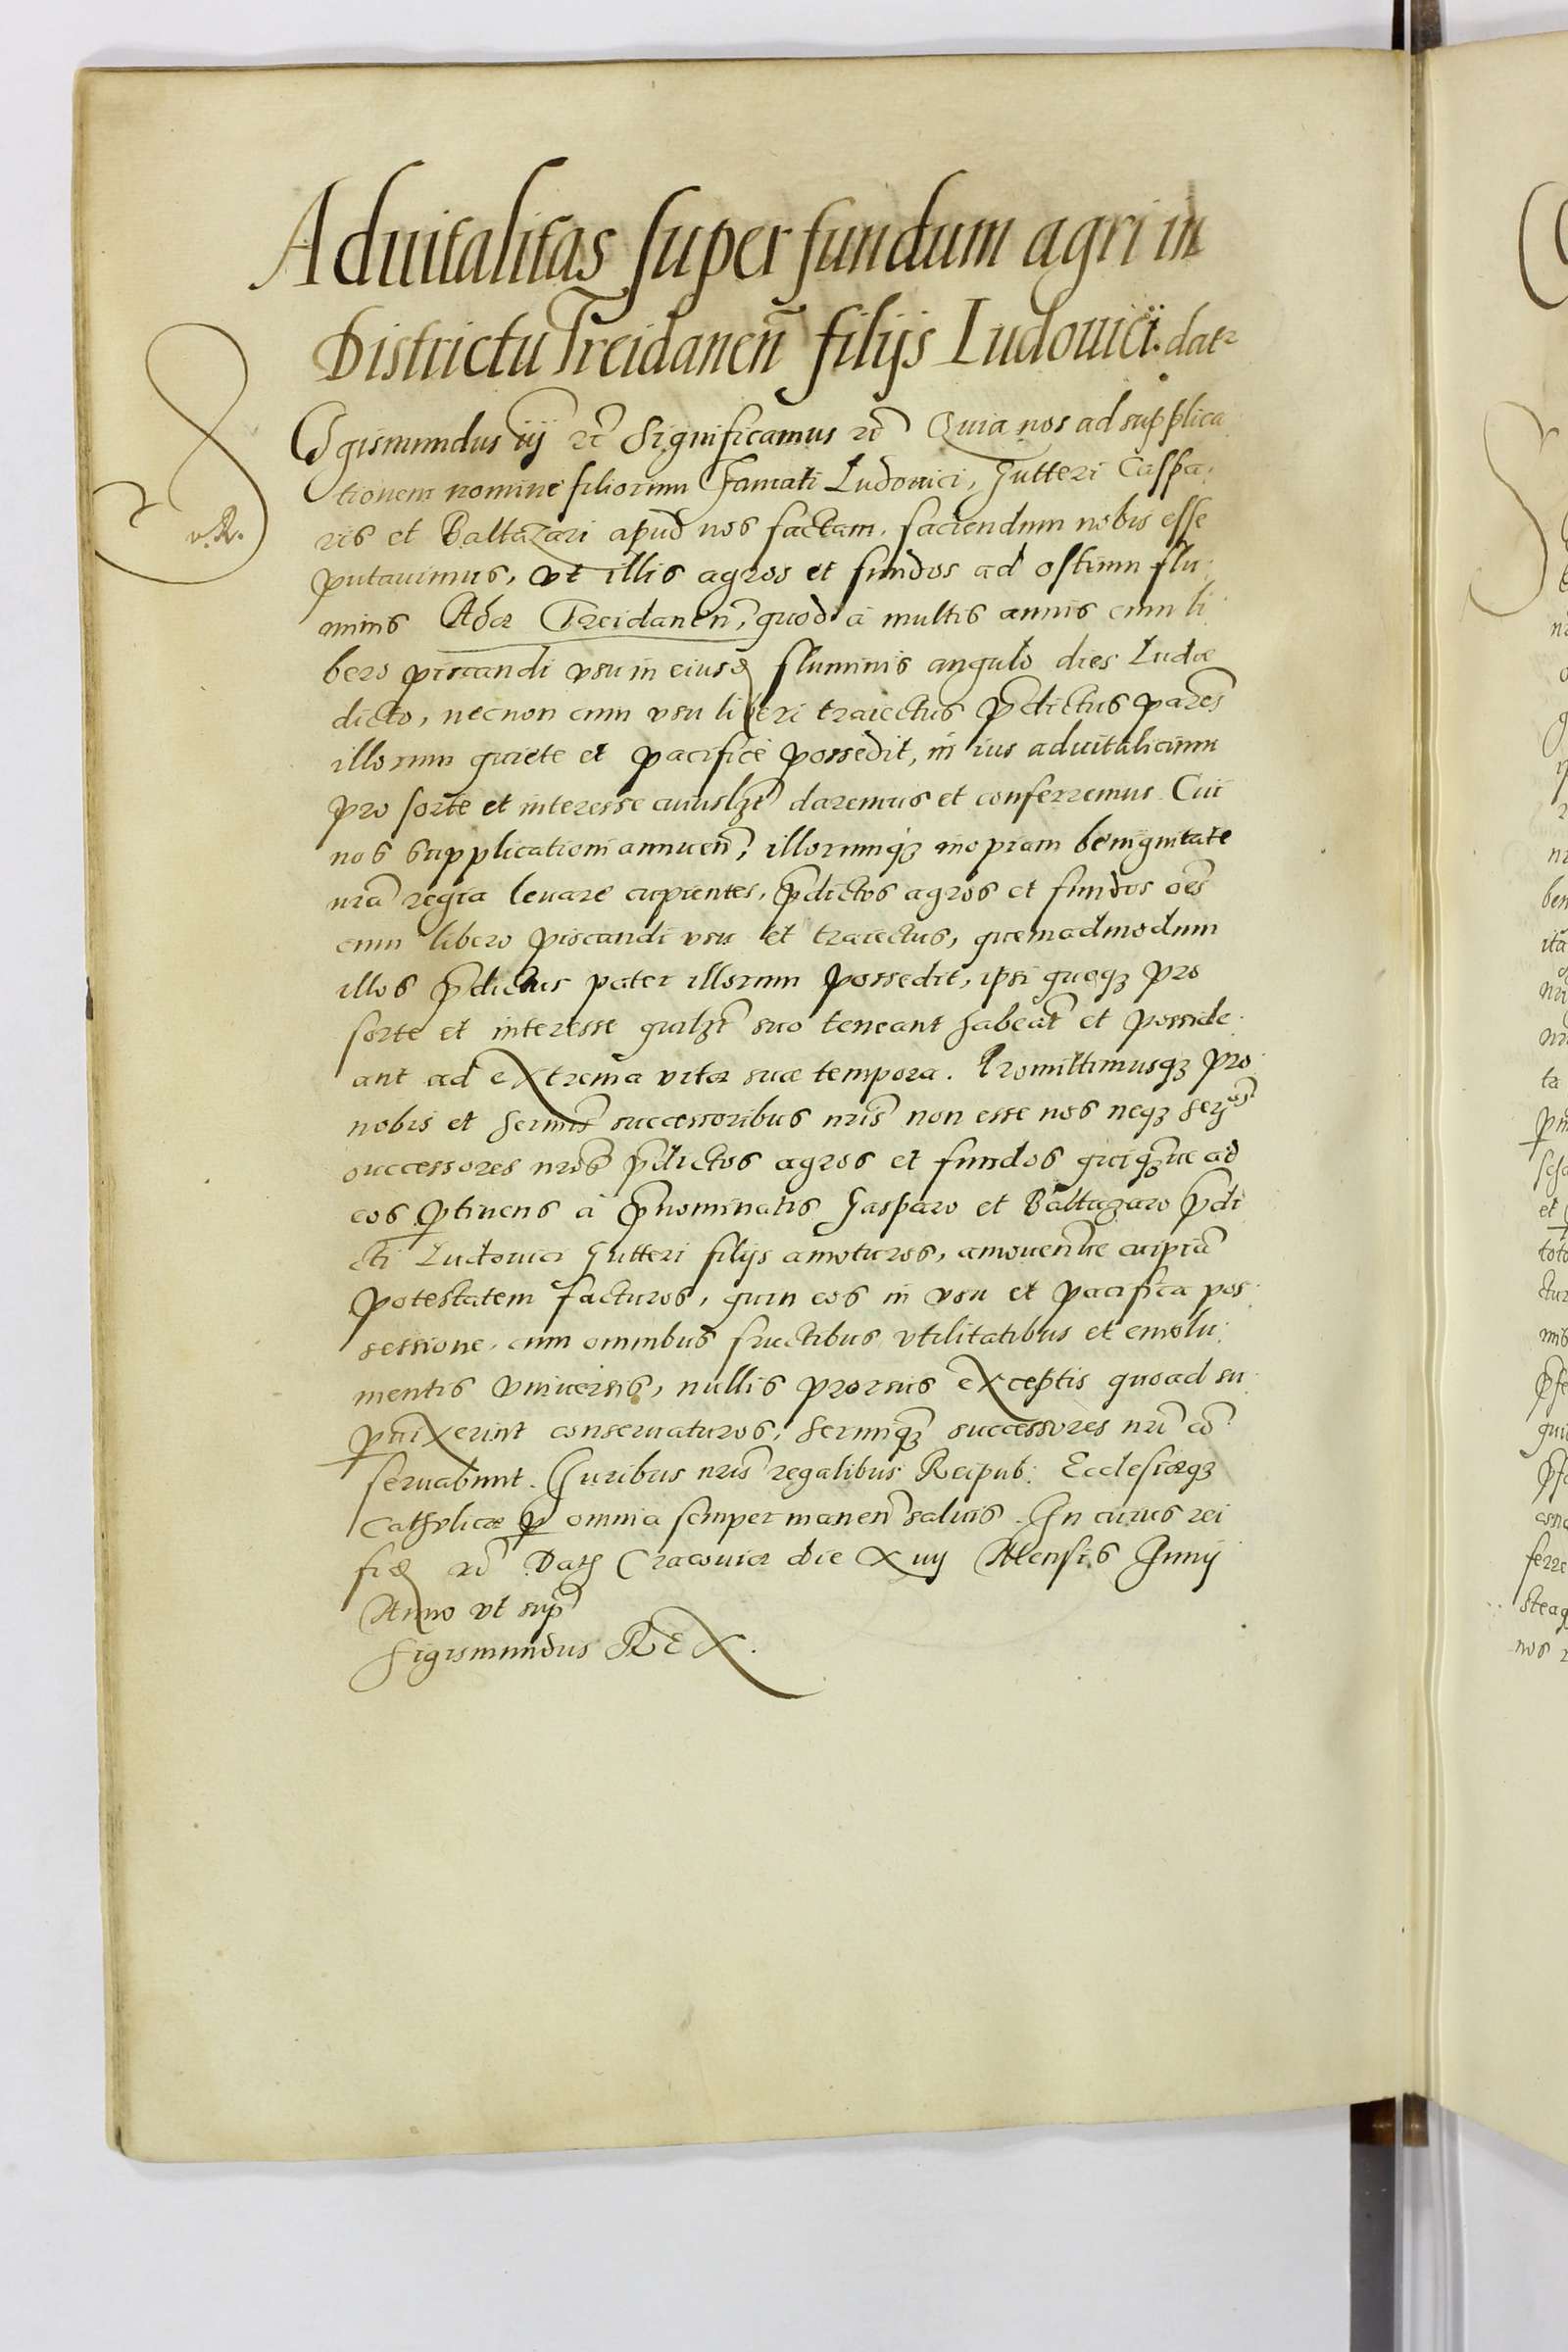 Aduitalitas super fundum agri in
Districtu Treidanen̄ filijs Ludouici. datr
Sigismundus iij etc̃ Significamus etc̃ Quia nos ad supplica
tionem nomine filiorum Famati Ludouici, Hutteri Caspa.
ris et Baltazari apud nos factam, faciendum nobis esse
putauimus, vt illis agros et fundos ad ostium flu:
minis Adæ Treidanen̄, quod à multis annis cum li
bero piscandi vsu in eiusd fluminis angulo dies Ludæ
dicto, necnon cum vsu liberi traiectus p̃dictus pares̃
illorum quiete et pacificè possedit, in ius aduitalicium
pro sorte et interesse cuiuslzt̃ daremus et conferremus. Cui
nos supplicationi annuen̄, illorumqȝ inopiam benignitate
nr̃a regia leuare cupientes, p̃dictos agros et fundos oẽs
cum libero piscandi vsu et traiectus, quemadmodum
illos p̃dictus pater illorum possedit, ipsi quoqȝ pro
sorte et interesse quilzt̃ suo teneant habeat̃ et posside:
ant ad extrema vitæ suæ tempora. Promittimusqȝ pro
nobis et sermis̃ successoribus nr̃is non esse nos neqȝ
successores nr̃os p̃dictos agros et fundos ad
eos ꝑtinens à p̃nominatis Gasparo et Baltazaro p̃di
cti Ludouici Hutteri filijs amoturos, amouendiue cuipiã
potestatem facturos, quin eos in vsu et pacifica pos:
sessione, cum omnibus fructibus vtilitatibus et emolu:
mentis vniuersis, nullis prorsus exceptis quoad su
ꝑuixerint conseruaturos, sermiqȝ successores nr̃i cõ
seruabunt. Iuribus nr̃is regalibus Reipub: Ecclesiæqȝ
Catholicæ ꝑ omnia semper manen̄ saluis. In cuius rei
fid etc̃ Dat Cracouiæ die xiiij Mensis Iunij
Anno vt sup̃
Sigismundus REX.
v. R.